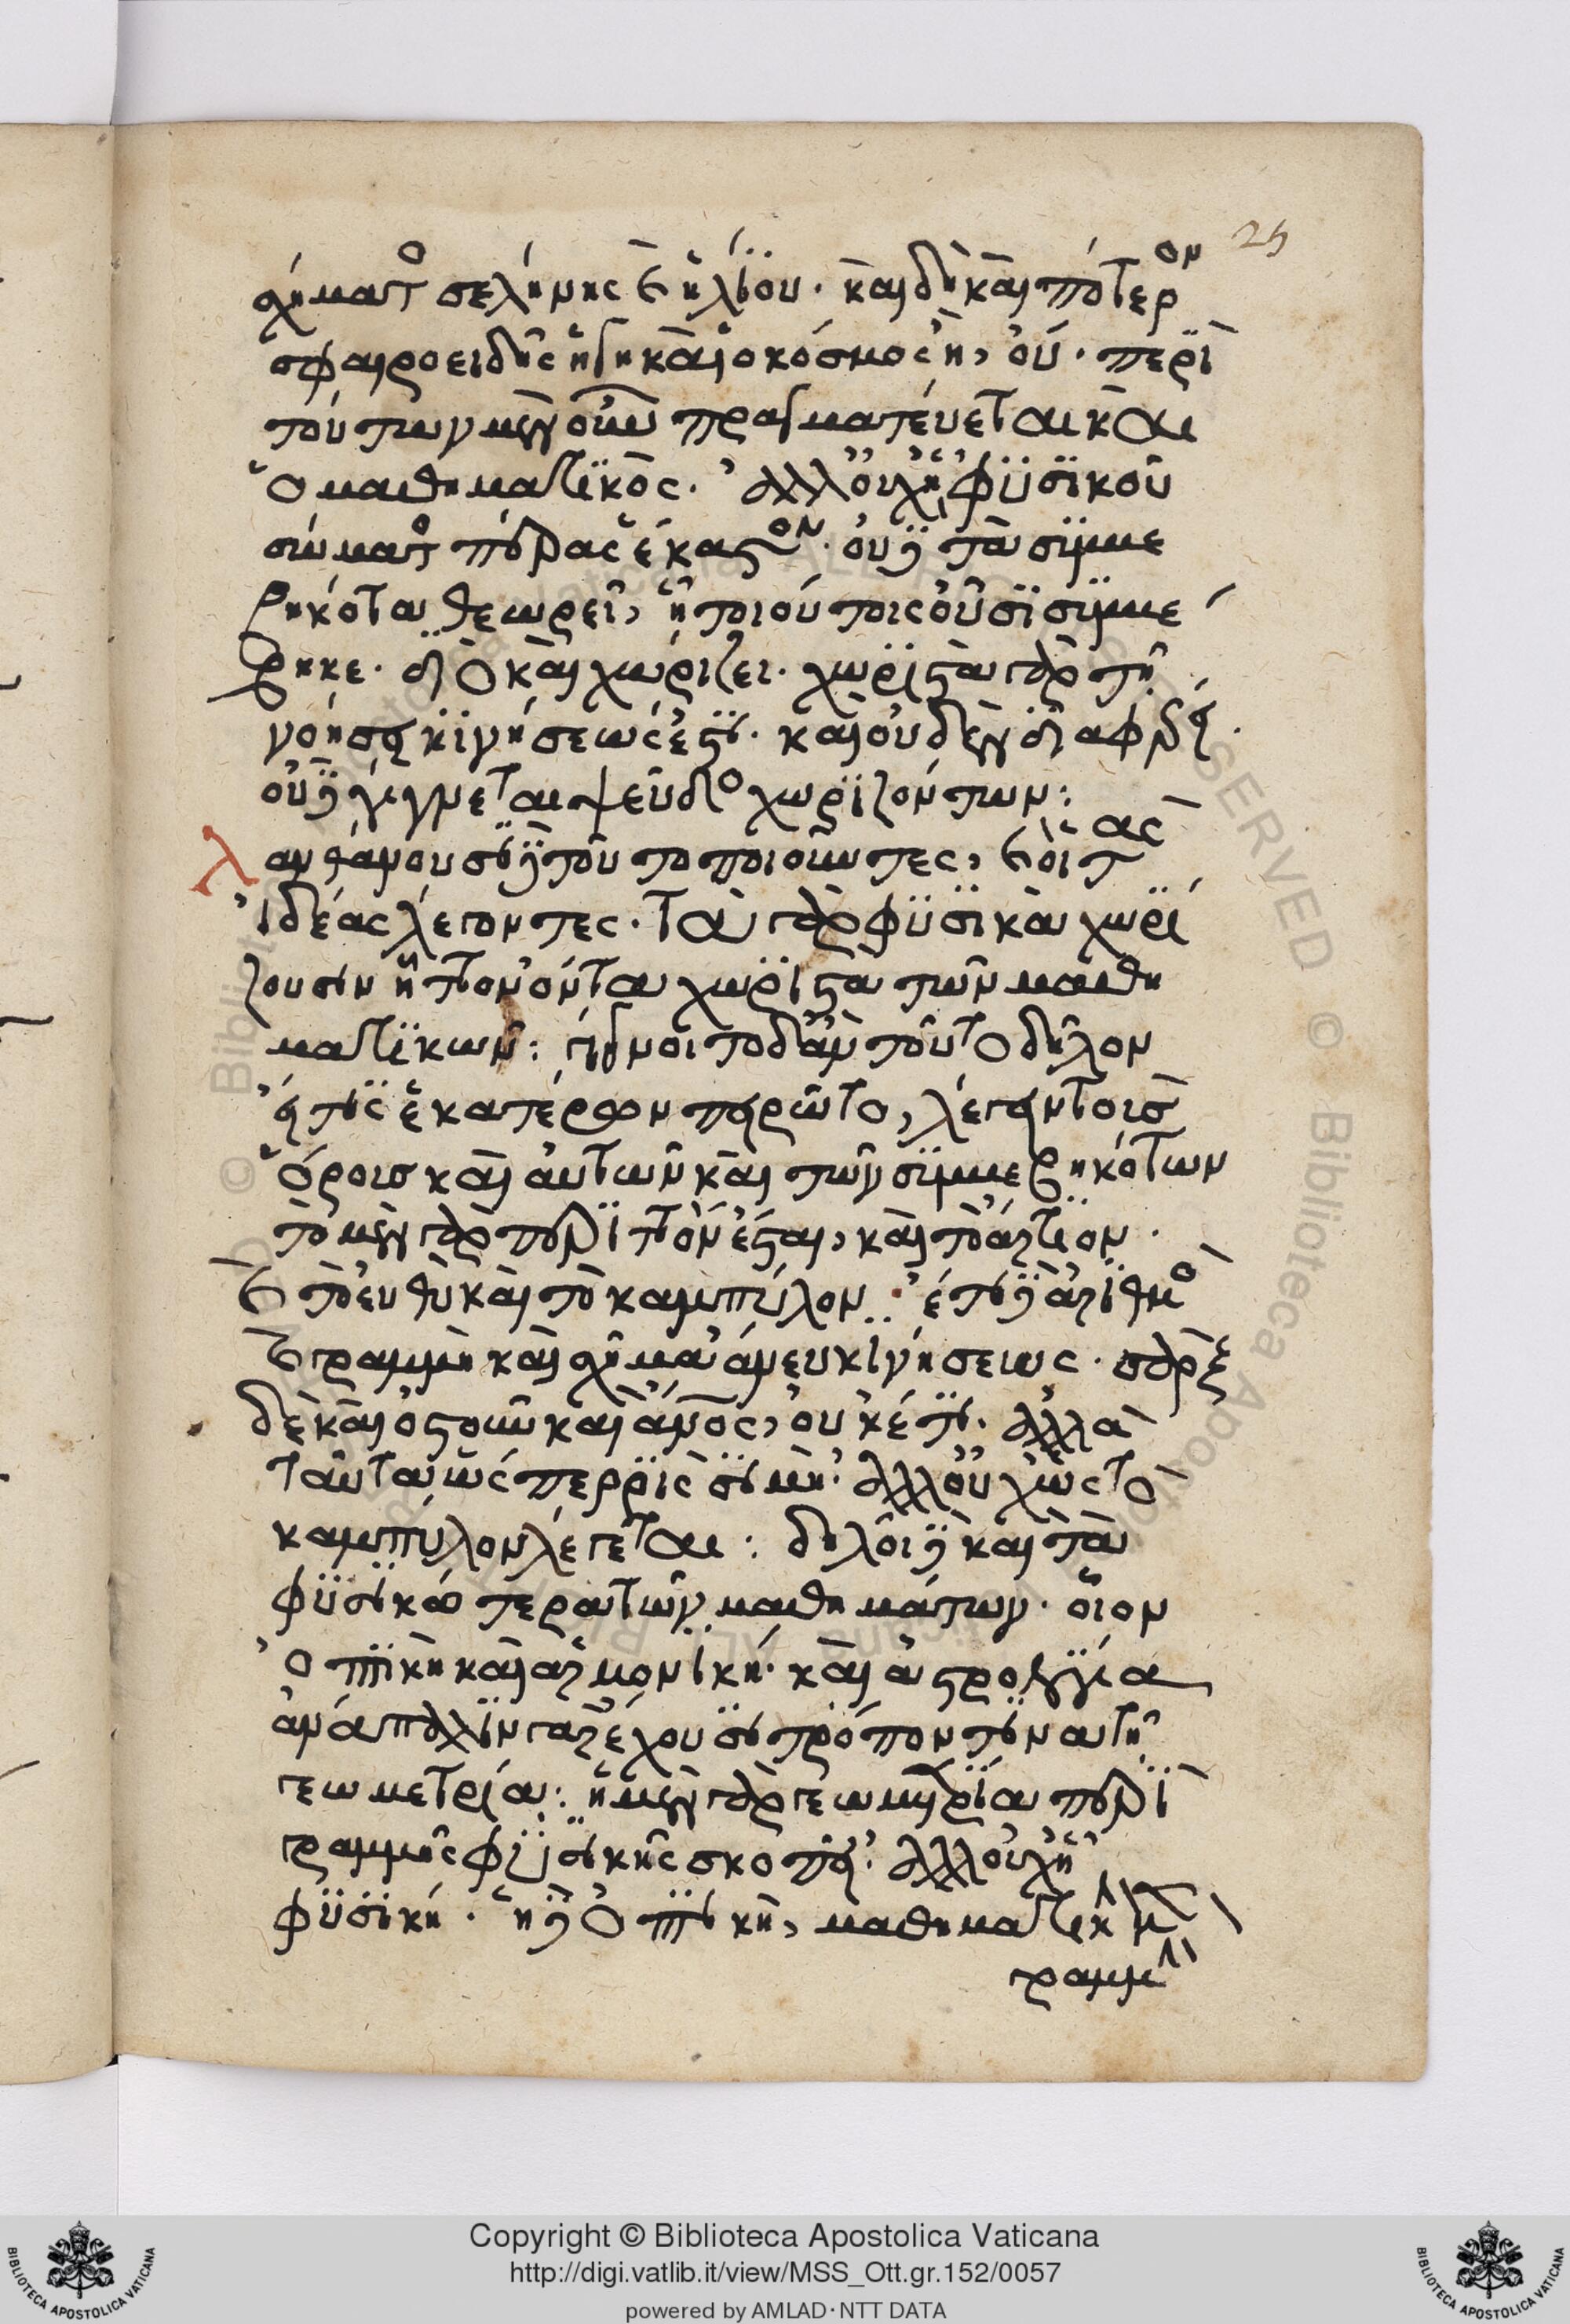 25
σχήματος σελήνης καὶ ἡλίου. καὶ δὴ καὶ πότερον
σφαιροειδὴς ἡ γῆ καὶ ὁ κόσμος ἢ, οὔ. περὶ
τούτων μὲν οὖν πραγματεύεται καὶ
ὁ μαθηματικὸς. ἀλλ' οὐχ ᾗ φυσικοῦ
σώματος πέρας ἕκαστον. οὐδὲ τὰ συμβε
βηκότα θεωρεῖ, ᾗ τοιούτοις οὖσι συμβέ
βηκε. διὸ καὶ χωρίζει. χωριστὰ γὰρ τῇ
νοήσει κινήσεώς ἐστι. καὶ οὐδὲν διαφέρει.
οὐδὲ γίγνεται ψεῦδος χωριζόντων:
λανθάνουσι δὲ τοῦτο ποιοῦντες, καὶ οἱ τὰς
ἰδέας λέγοντες. τὰ γὰρ φυσικὰ χωρί
ζουσιν ἧττον ὄντα χωριστὰ τῶν μαθη
ματικῶν: γίγνοιτο δ' ἂν τοῦτο δῆλον
εἴ τις ἑκατέρων πειρῶτο, λέγειν τοὺς
ὅρους καὶ αὐτῶν καὶ τῶν συμβεβηκότων
τὸ μὲν γὰρ περιττὸν ἔσται, καὶ τὸ ἄρτιον.
καὶ τὸ εὐθὺ καὶ τὸ καμπύλον. ἔτι δὲ ἀριθμὸς
καὶ γραμμὴ καὶ σχῆμα ἄνευ κινήσεως. σὰρξ
δὲ καὶ ὀστοῦν καὶ ἄνθρωπος, οὐκέτι. ἀλλὰ
ταῦτα ὥσπερ ῥὶς σιμὴ. ἀλλ' οὐχ ὡς τὸ
καμπύλον λέγεται: δηλοῖ δὲ καὶ τὰ
φυσικώτερα τῶν μαθημάτων. οἷον
ὀπτικὴ καὶ ἁρμονική. καὶ ἀστρολογία
ἀνάπαλιν γὰρ ἔχουσι τρόπον τιν' αὐτῇ
γεωμετρίᾳ: ἡ μὲν γὰρ γεωμετρία περὶ
γραμμῆς φυσικῆς σκοπεῖ. ἀλλ' οὐχ ᾗ
φυσική. ἡ δὲ ὀπτικὴ, μαθηματικὴν μὲν
γραμμὴν
Copyright © Biblioteca Apostolica Vaticana
http://digi.vatlib.it/view/MSS_Ott.gr.152/0057
powered by AMLAD · NTT DATA